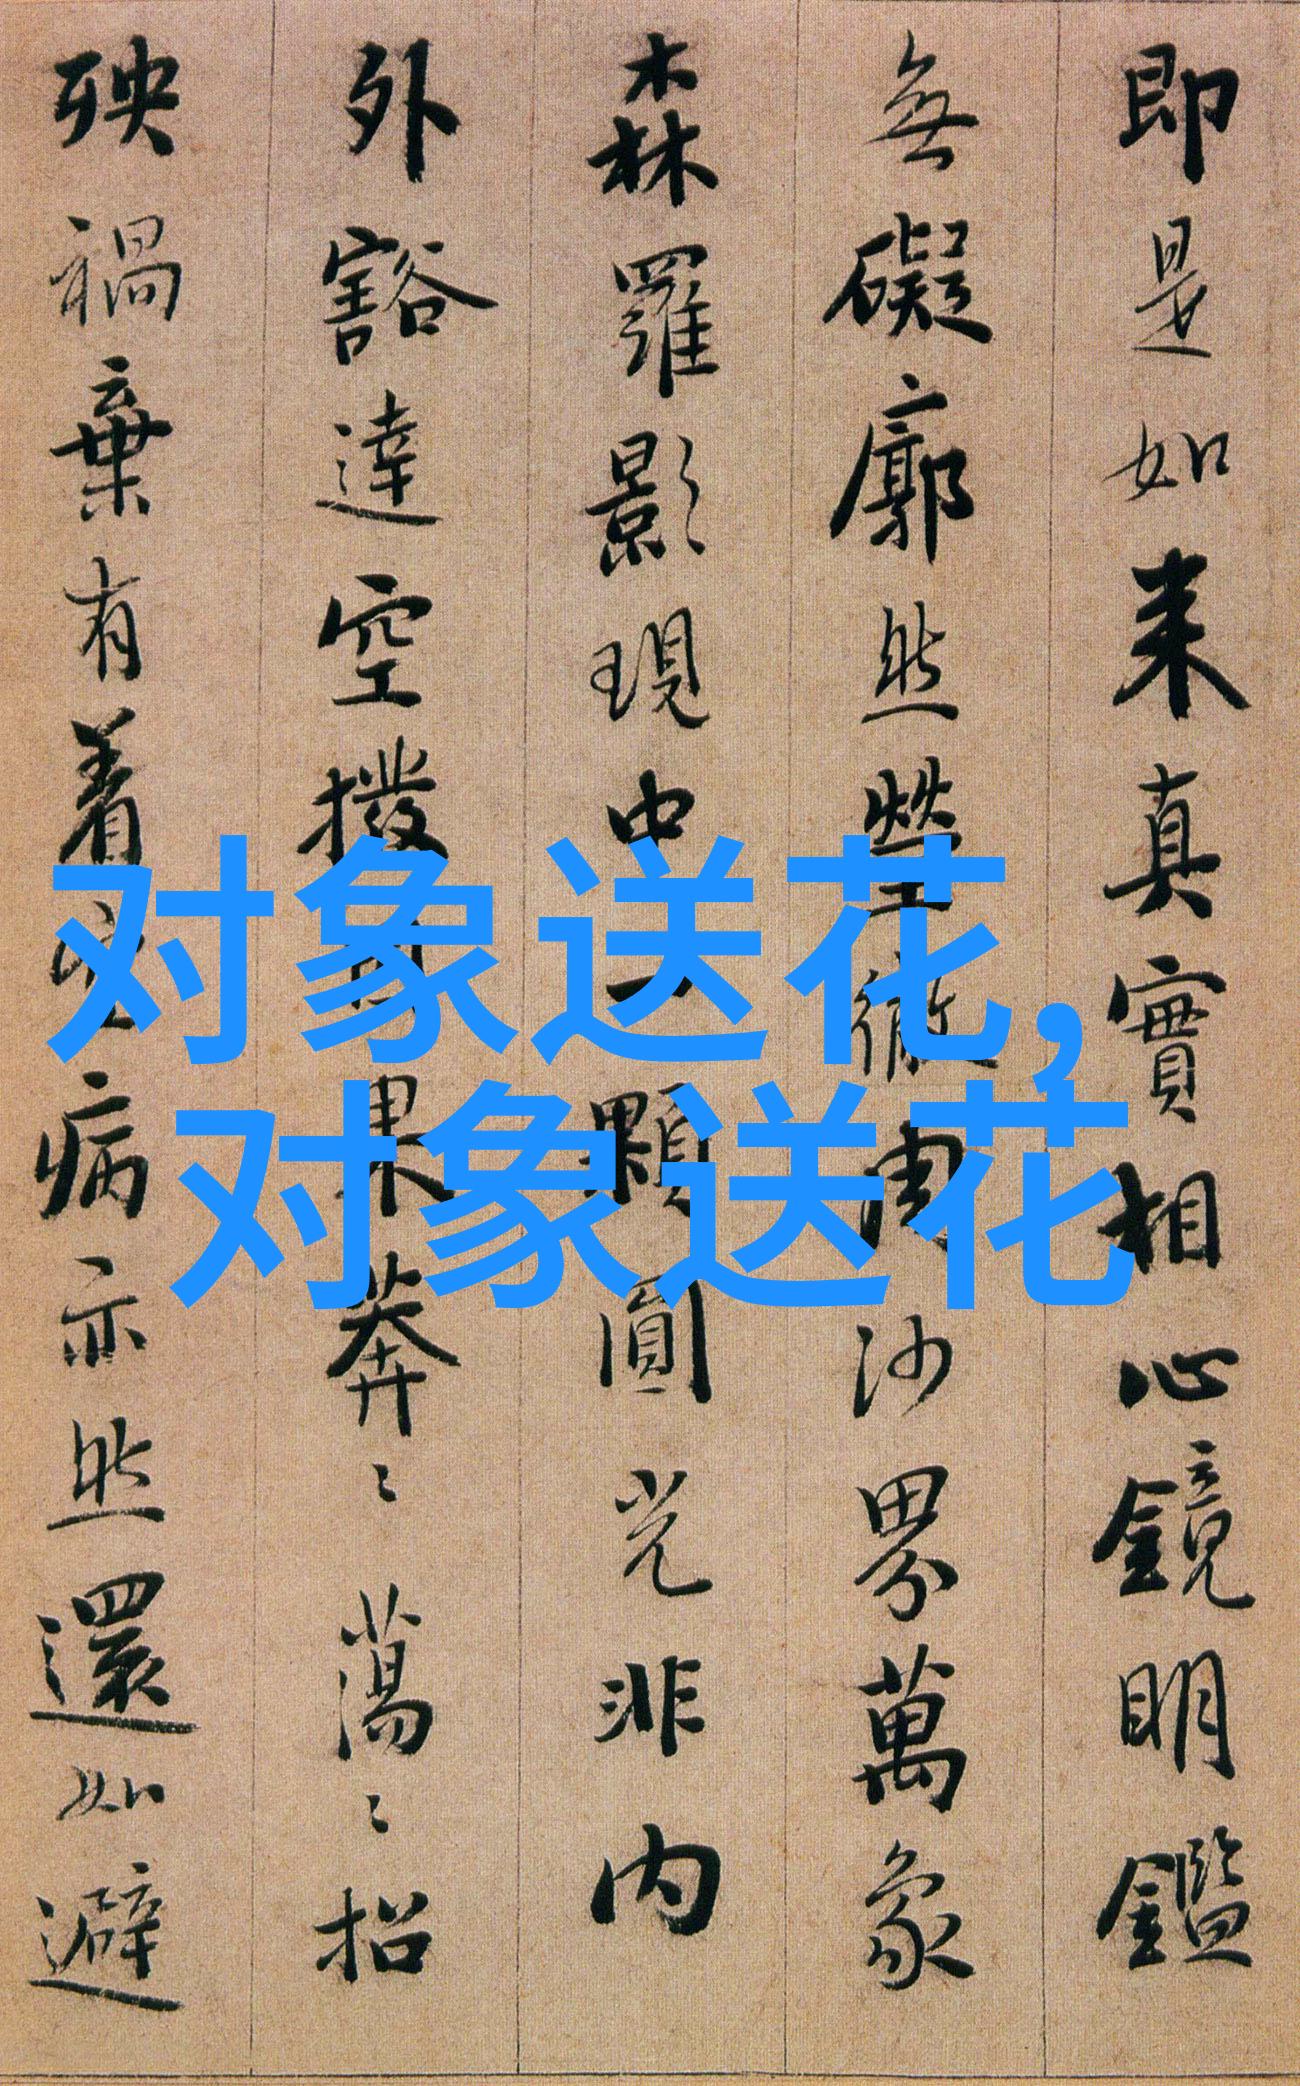 即是如来真實相心鏡明鑑
無礙廓然瑩徹周沙界萬象
森羅影現中一顆圓光非内
外豁達空撥因果莽〻蕩〻招
殃禍棄有着空病亦然還如避
对象送花,
对象送花